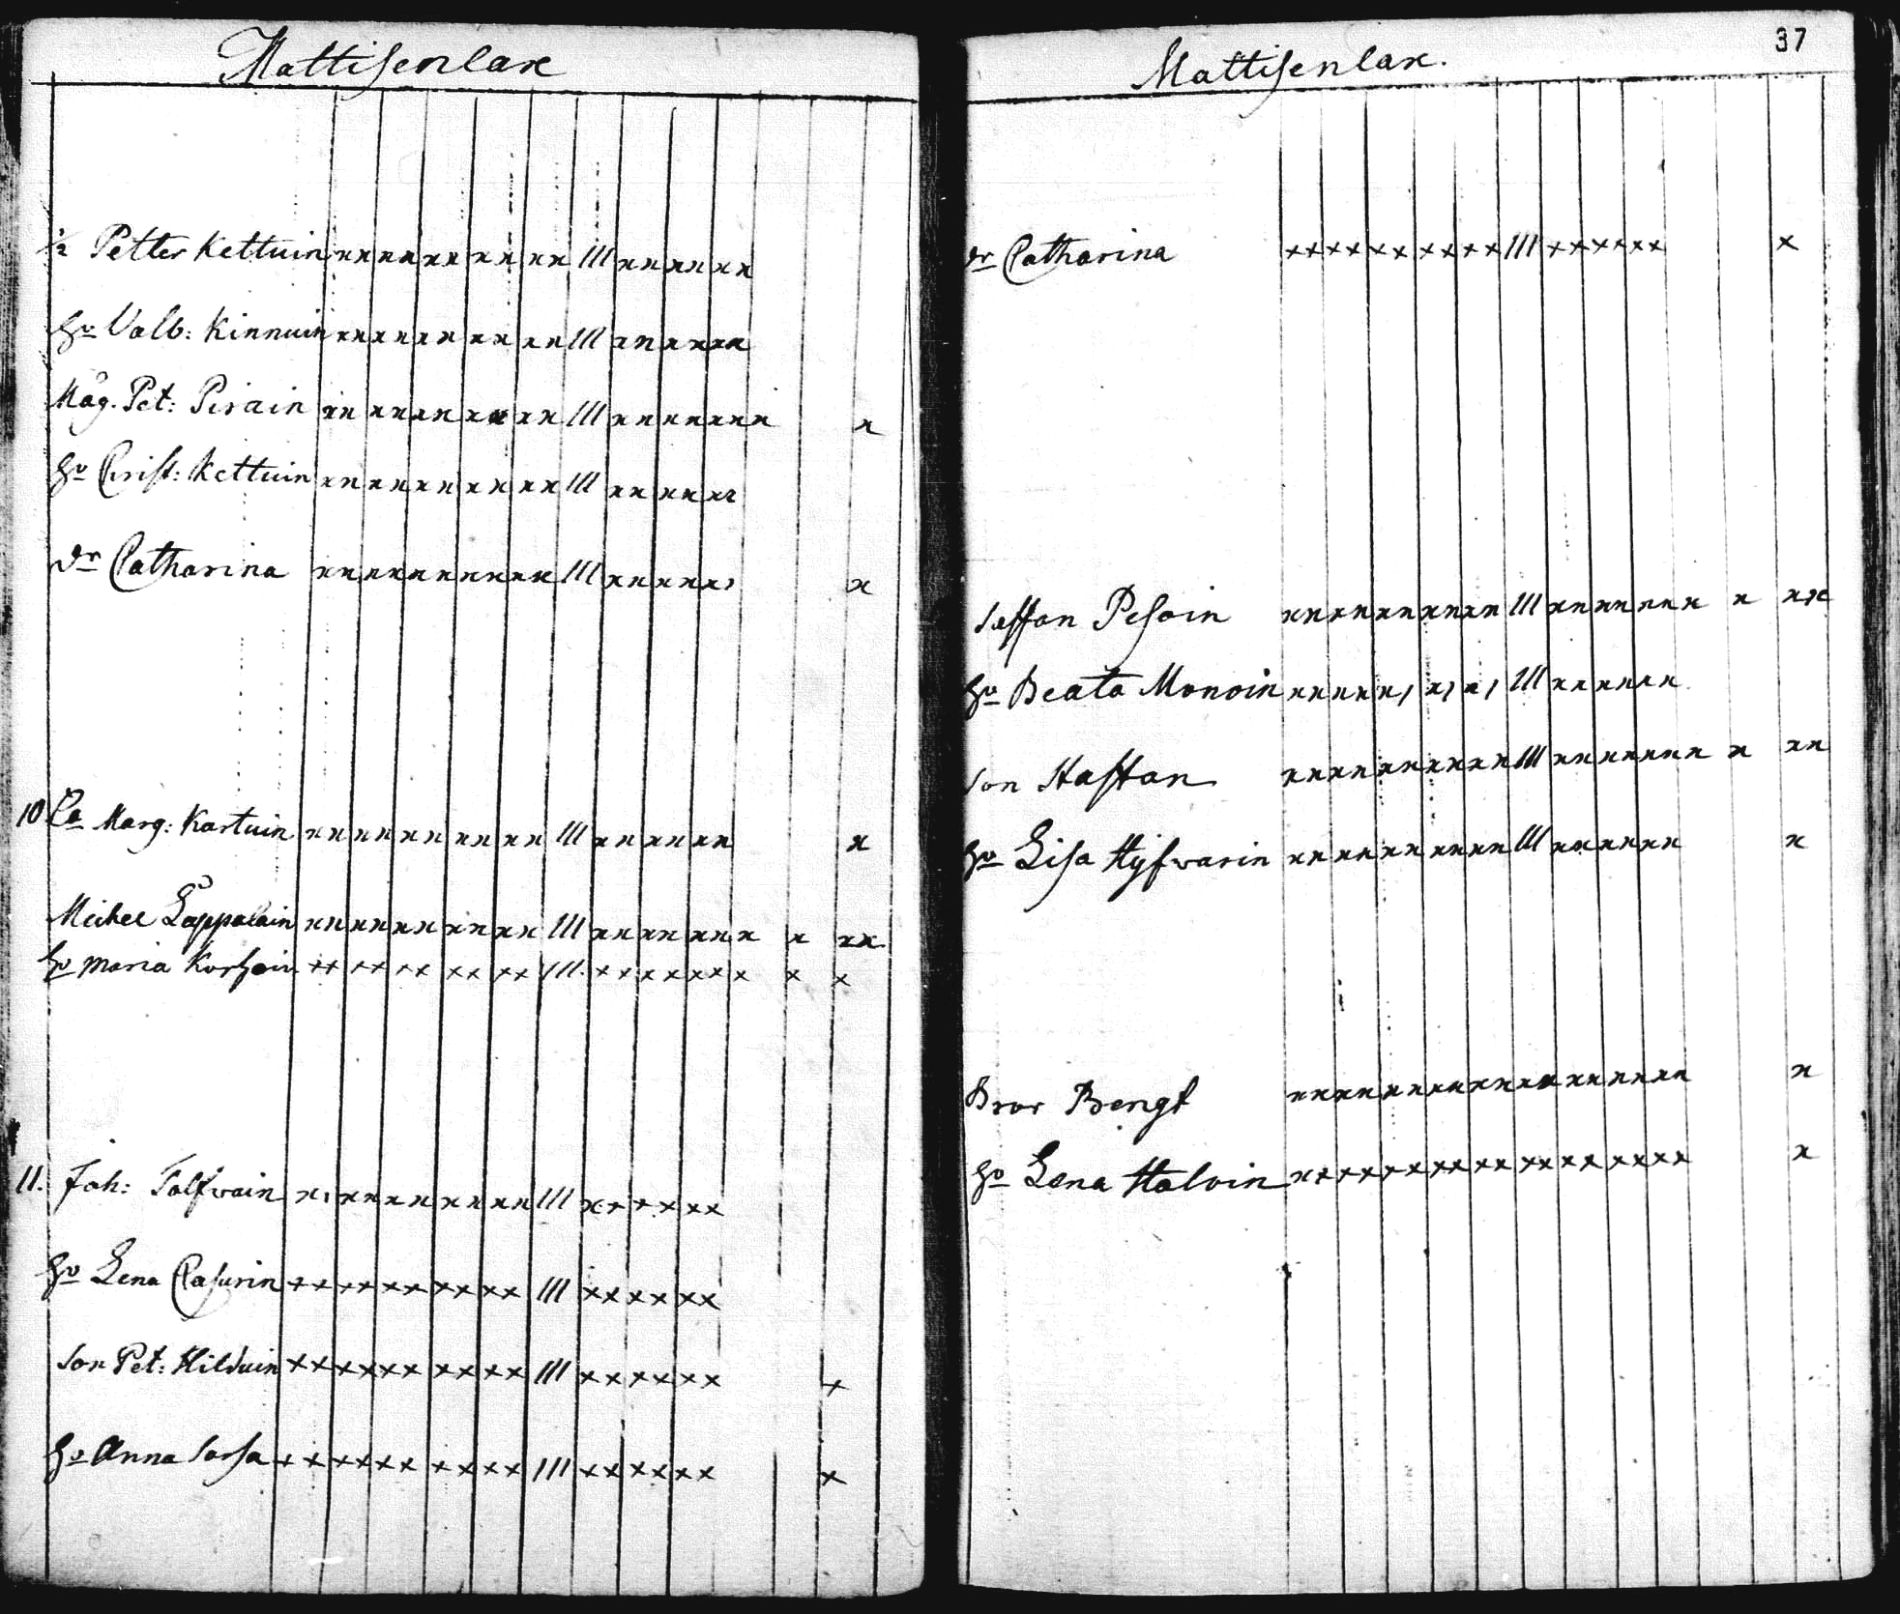 Mattisenlax
½ Petter Kettuin xx xx xx xx xx III xx xx xx
hu Valb: Kinnuin xx xx xx xx xx III xx xx xx
Måg. Pet: Pirain xx xx xx xx xx III xx xx xx x x
hu Christ: Kettuin xx xx xx xx xx III xx xx xx
dr Catharina xx xx xx xx xx III xx xx xx x
10 Ea Marg: Kartuin xx xx xx xx xx III xx xx xx x
Michel Lappalain xx xx xx xx xx III xx xx xx x x xx
hu Maria Korhoin xx xx xx xx xx III xx xx xx x x x
11. Joh: Tolfwain x, xx xx xx xx III xx xx xx
hu Lena Casurin xx xx xx xx xx III xx xx xx
Son Pet: Hilduin xx xx xx xx xx III xx xx xx x
hu Anna Sorsa xx xx xx xx xx III xx xx xx x
37
Mattisenlax.
dr Catharina xx xx xx xx xx III xx xx xx x
Staffan Pesoin xx xx xx xx xx III xx xx xx x x xx
hu Beata Monoin xx xx x, x, x, III xx xx xx
Son Staffan xx xx xx xx xx III xx xx xx x x xx
hu Lisa Hyfwarin xx xx xx xx xx III xx xx xx x
Bror Bengt xx xx xx xx xx xx xx xx xx x
hu Lena Halvin xx xx xx xx xx xx xx xx xx x